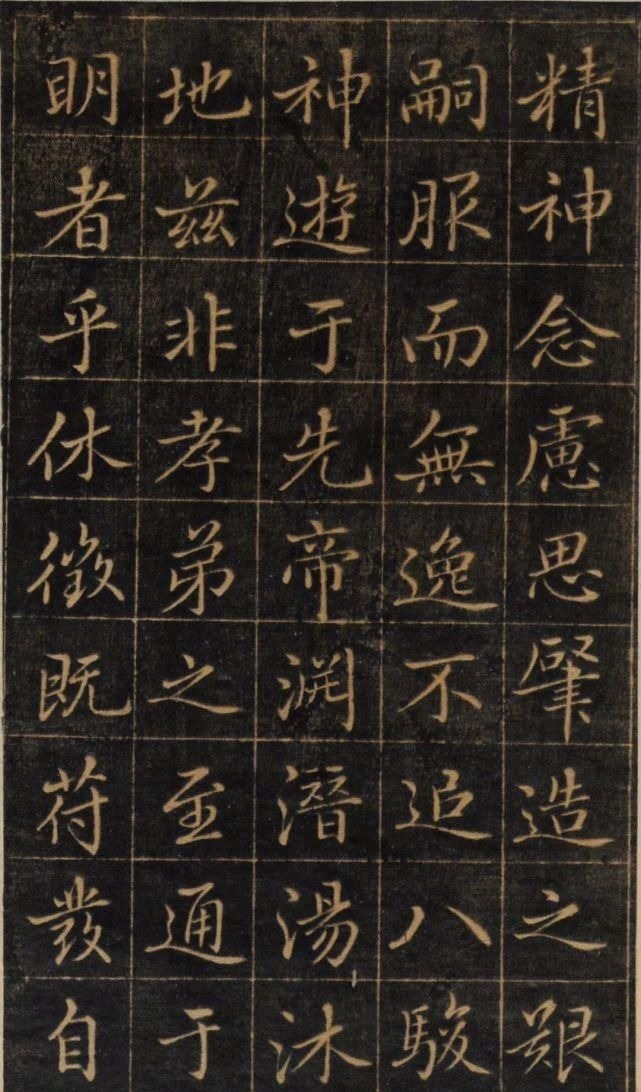 精神念慮思肇造之艱
嗣服而無逸不追八駿
神遊于先帝淵潛湯沐
地兹非孝弟之至通于
明者乎休徵既苻發自